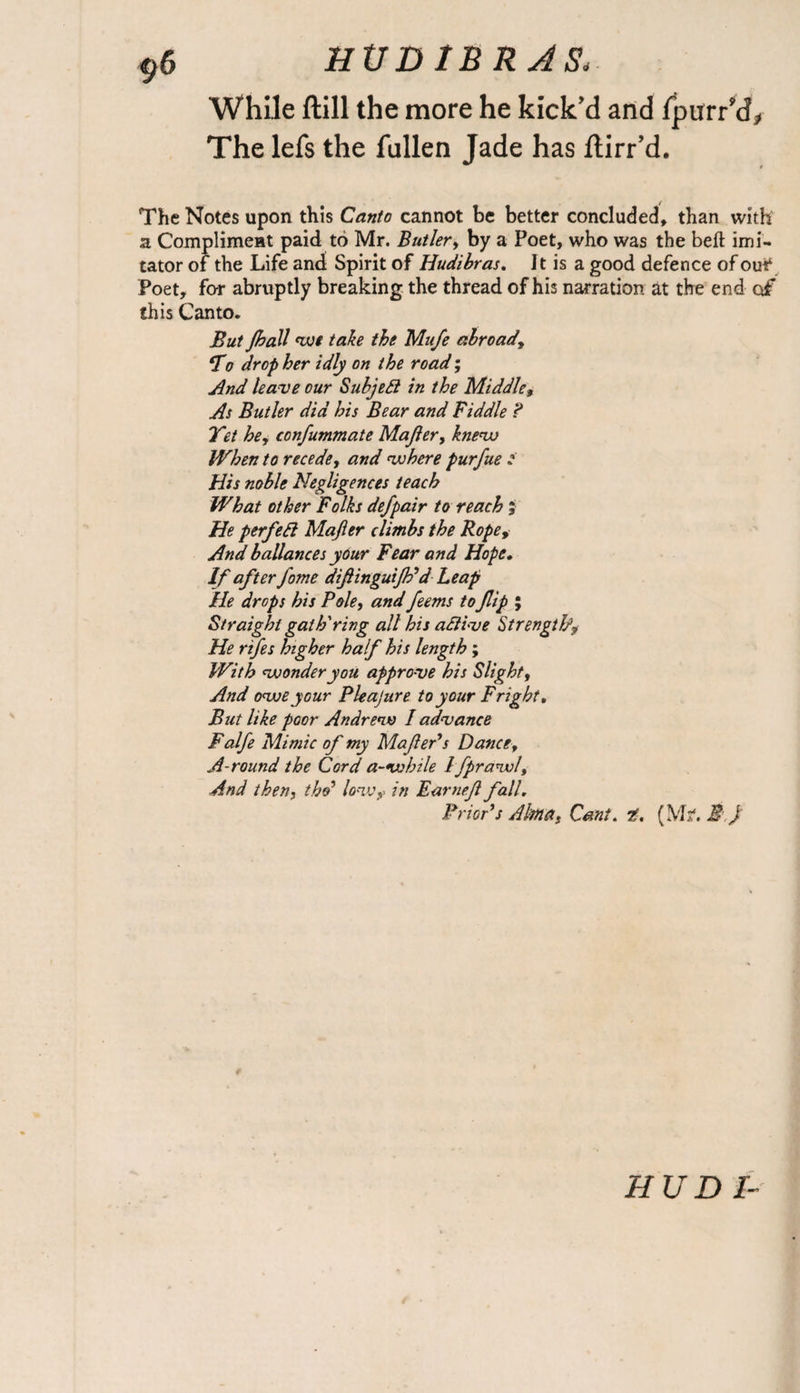 96 HUDIBRAS.
While ſtill the more he kick'd and ſpurr'd,
The leſs the ſullen Jade has ſtirr'd.
The Notes upon this Canto cannot be better concluded, than with
a Compliment paid to Mr. Butler, by a Poet, who was the beſt imi-
tator of the Life and Spirit of Hudibras. It is a good defence of our
Poet, for abruptly breaking the thread of his narration at the end of
this Canto.
But ſhall we take the Muſe abroad,
To drop her idly on the road;
And leave our Subject in the Middle,
As Butler did his Bear and Fiddle?
Yet he, conſummate Maſter, knew
When to recede, and where purſue:
His noble Negligences teach
What other Folks deſpair to reach;
He perfect Maſter climbs the Rope,
And ballances your Fear and Hope.
If after ſome diſtinguiſh'd Leap
He drops his Pole, and ſeems to ſlip;
Straight gath'ring all his active Strength,
He riſes higher half his length;
With wonder you approve his Slight,
And owe your Pleaſure to your Fright.
But like poor Andrew I advance
Falſe Mimic of my Maſter's Dance,
A-round the Cord a-while I ſprawl,
And then, tho' low, in Earneſt fall.
Prior's Alma, Cant. 2. (Mr. B.)
HUDI-